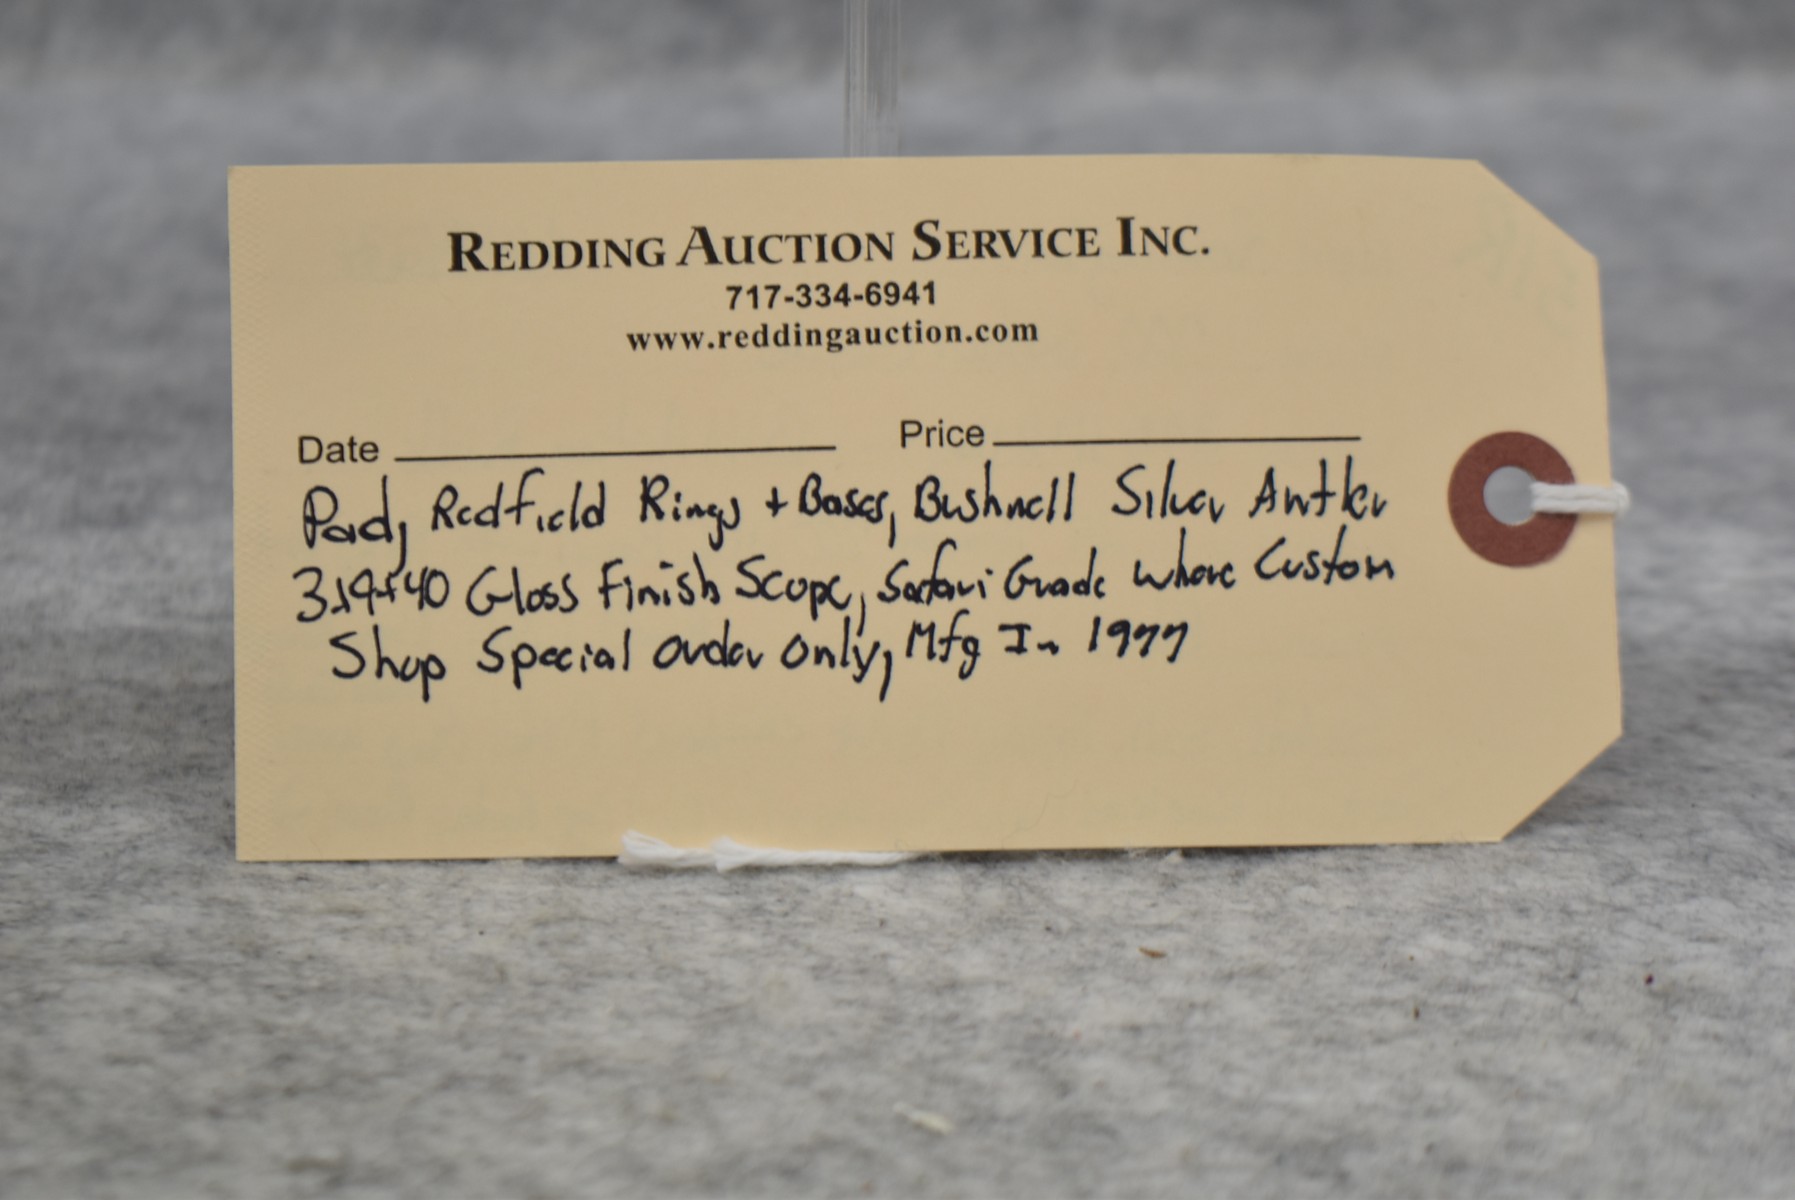 REDDING AUCTION SERVICE INC.
717-334-6941
www.reddingauction.com
Date Price
Pad, Redfield Rings + Bases, Bushnell Silver Antler
3x9x40 Gloss Finish Scope, Safari Grade Where Custom
Shop Special Order Only, Mfg In 1977